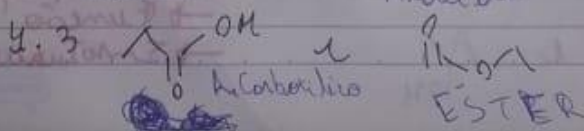 4.3 OH e O
O A. Carboxílico O
ESTER